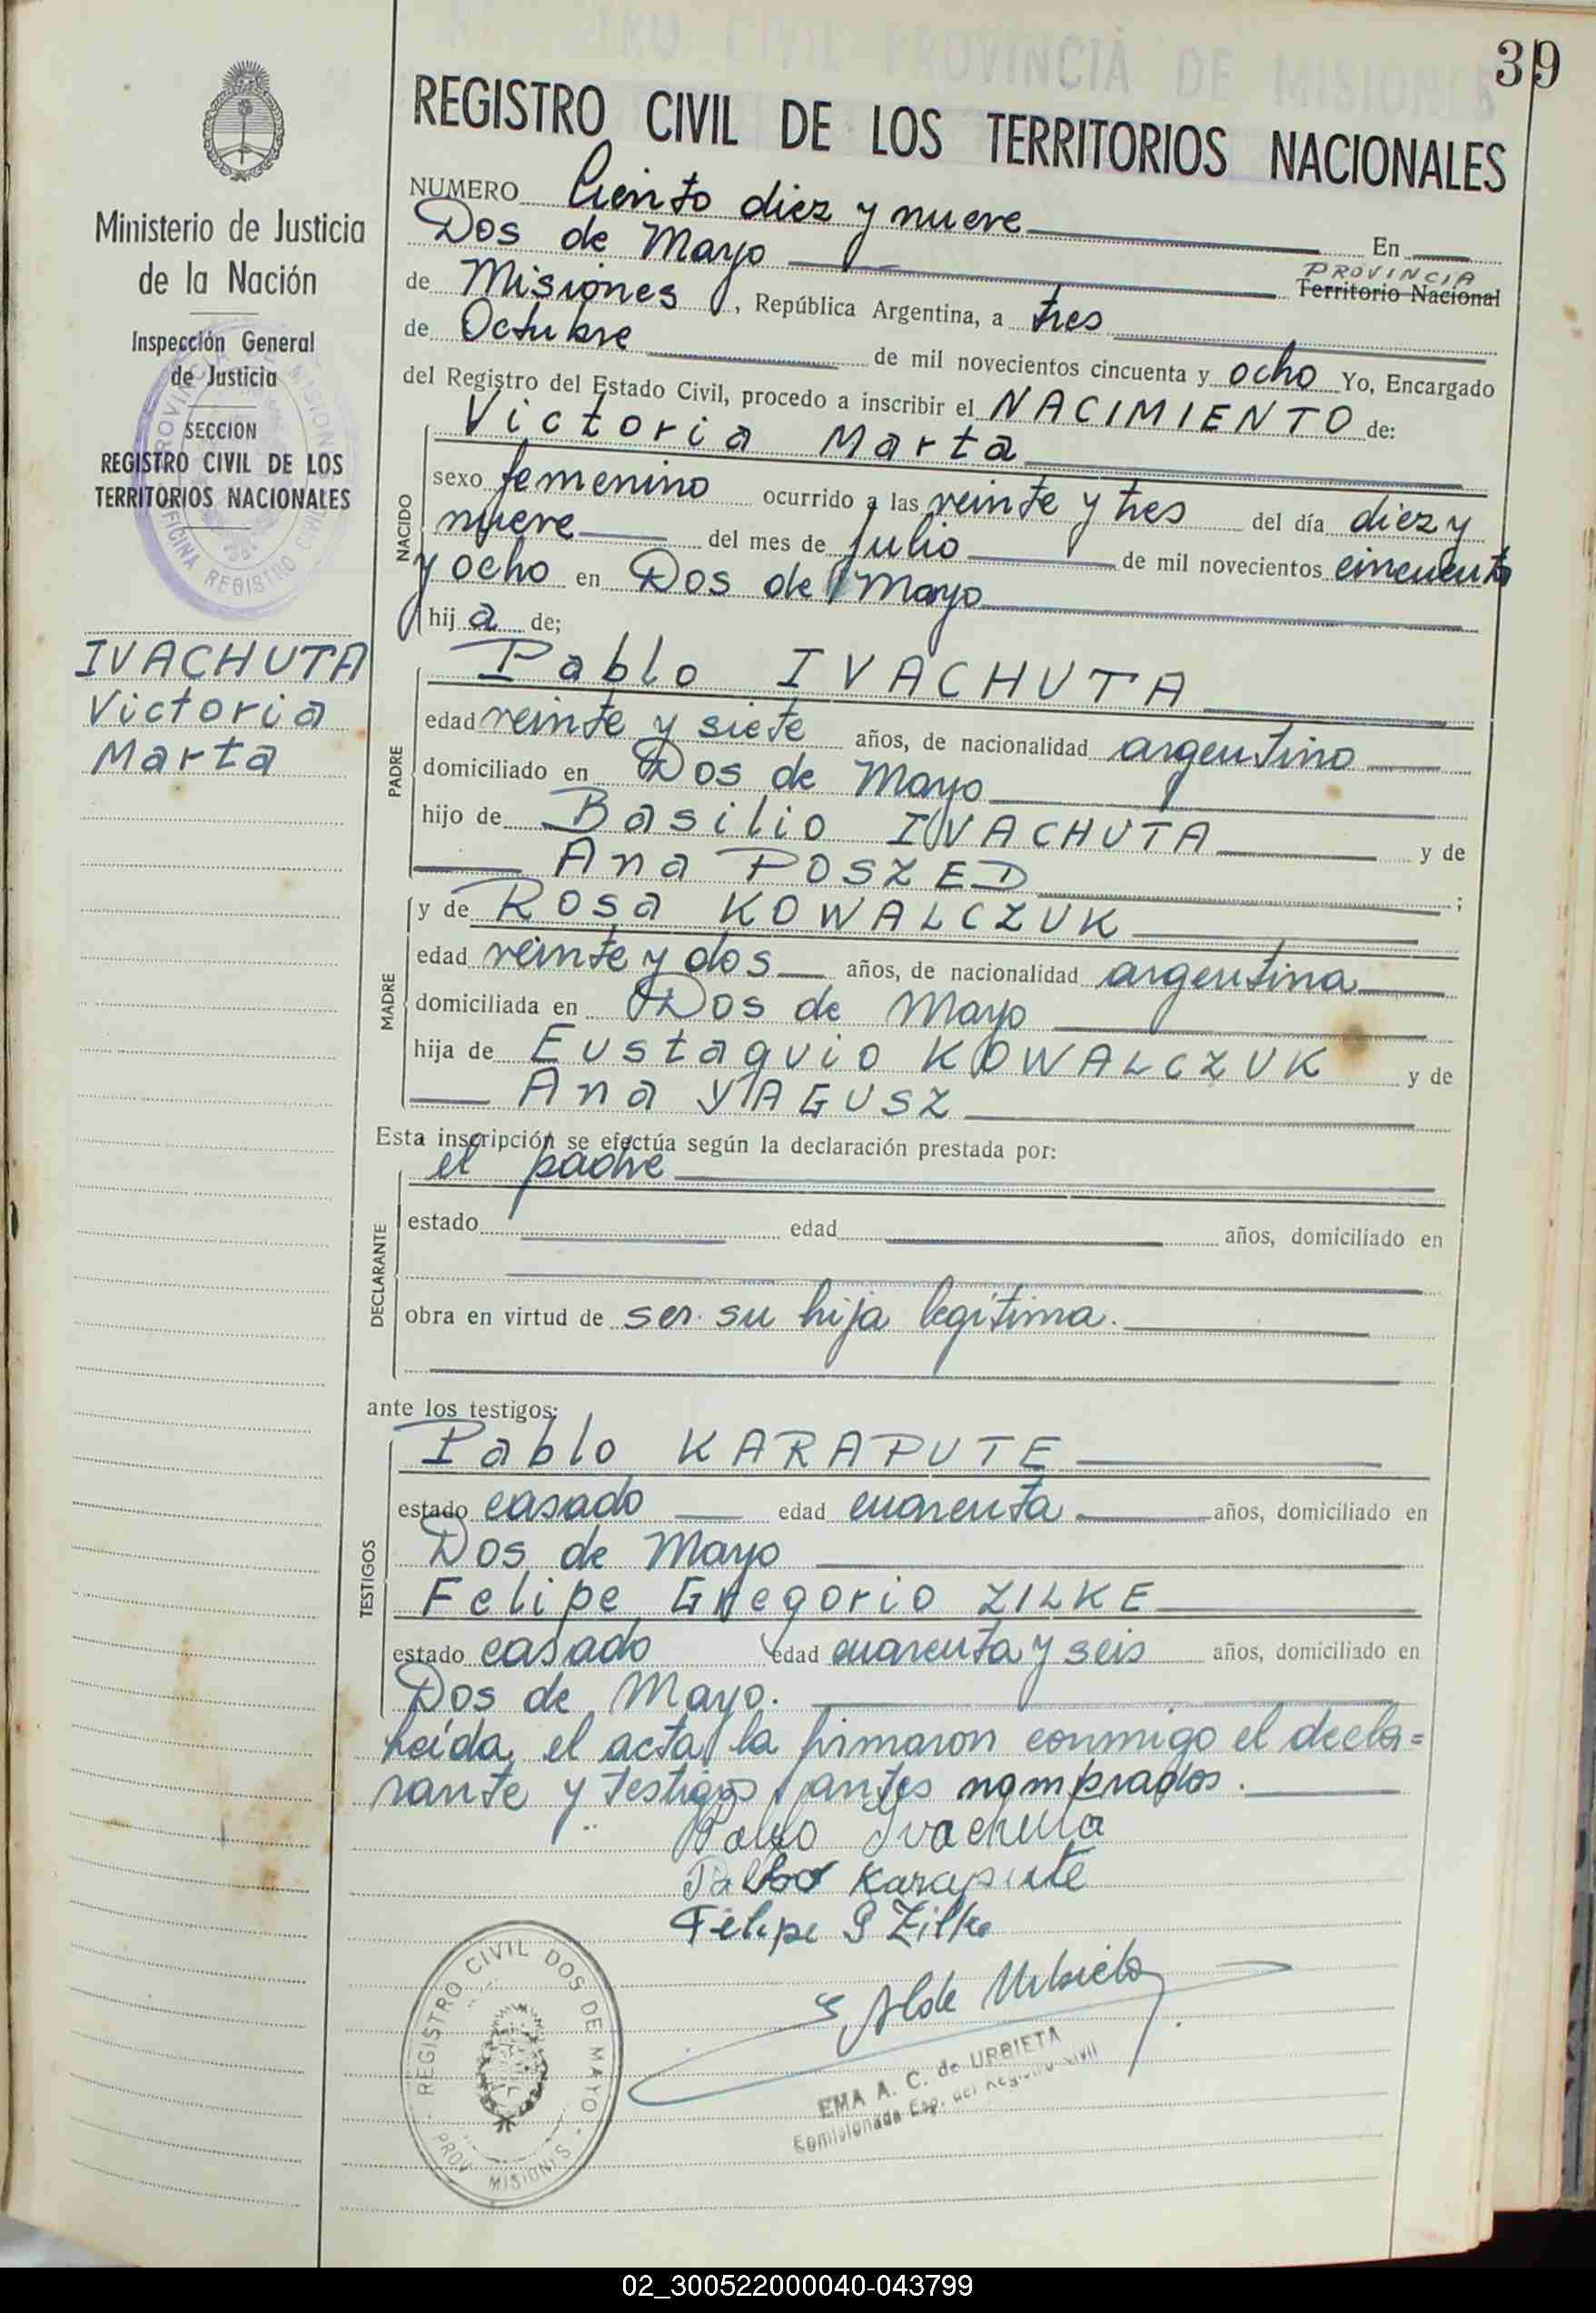 39
REGISTRO CIVIL DE LOS TERRITORIOS NACIONALES
Ministerio de Justicia
de la Nación
Inspección General
de Justicia
SECCION
REGISTRO CIVIL DE LOS
TERRITORIOS NACIONALES
IVACHUTA
Victoria
Marta
NUMERO Ciento diez y nueve En
Dos de Mayo PROVINCIA
de Misiones, República Argentina, a tres Territorio Nacional
de Octubre de mil novecientos cincuenta y ocho Yo, Encargado
del Registro del Estado Civil, procedo a inscribir el NACIMIENTO de:
NACIDO
Victoria Marta
sexo femenino ocurrido a las veinte y tres del día diez y
nueve del mes de Julio de mil novecientos cincuenta
y ocho en Dos de Mayo
hij a de;
PADRE
Pablo IVACHUTA
edad veinte y siete años, de nacionalidad argentino
domiciliado en Dos de Mayo
hijo de Basilio IVACHUTA y de
Ana POSZED ;
MADRE
y de Rosa KOWALCZUK
edad veinte y dos años, de nacionalidad argentina
domiciliada en Dos de Mayo
hija de Eustaquio KOWALCZUK y de
Ana YAGUSZ
Esta inscripción se efectúa según la declaración prestada por:
DECLARANTE
el padre
estado edad años, domiciliado en
obra en virtud de ser su hija legítima.
ante los testigos:
TESTIGOS
Pablo KARAPUTE
estado casado edad cuarenta años, domiciliado en
Dos de Mayo
Felipe Gregorio ZILKE
estado casado edad cuarenta y seis años, domiciliado en
Dos de Mayo.
Leída el acta la firmaron conmigo el decla=
rante y testigos antes nombrados.
Pablo Ivachuta
Pablo Karapute
Felipe G Zilke
REGISTRO CIVIL DOS DE MAYO
PROV. MISIONES
E A de Urbieta
EMA A. C. de URBIETA
Comisionada Esp. del Registro Civil
02_300522000040-043799